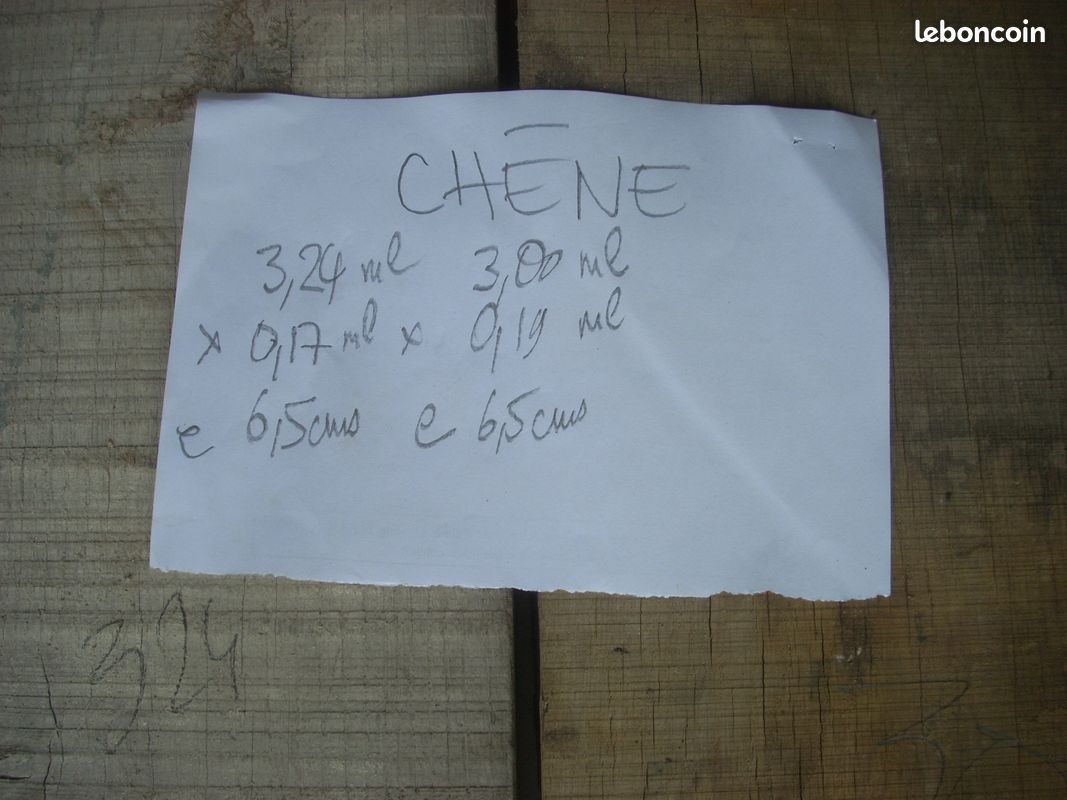 leboncoin
CHÊNE
3,24 ml 3,00 ml
x 0,17 ml x 0,19 ml
e 6,5cms e 6,5cms
324